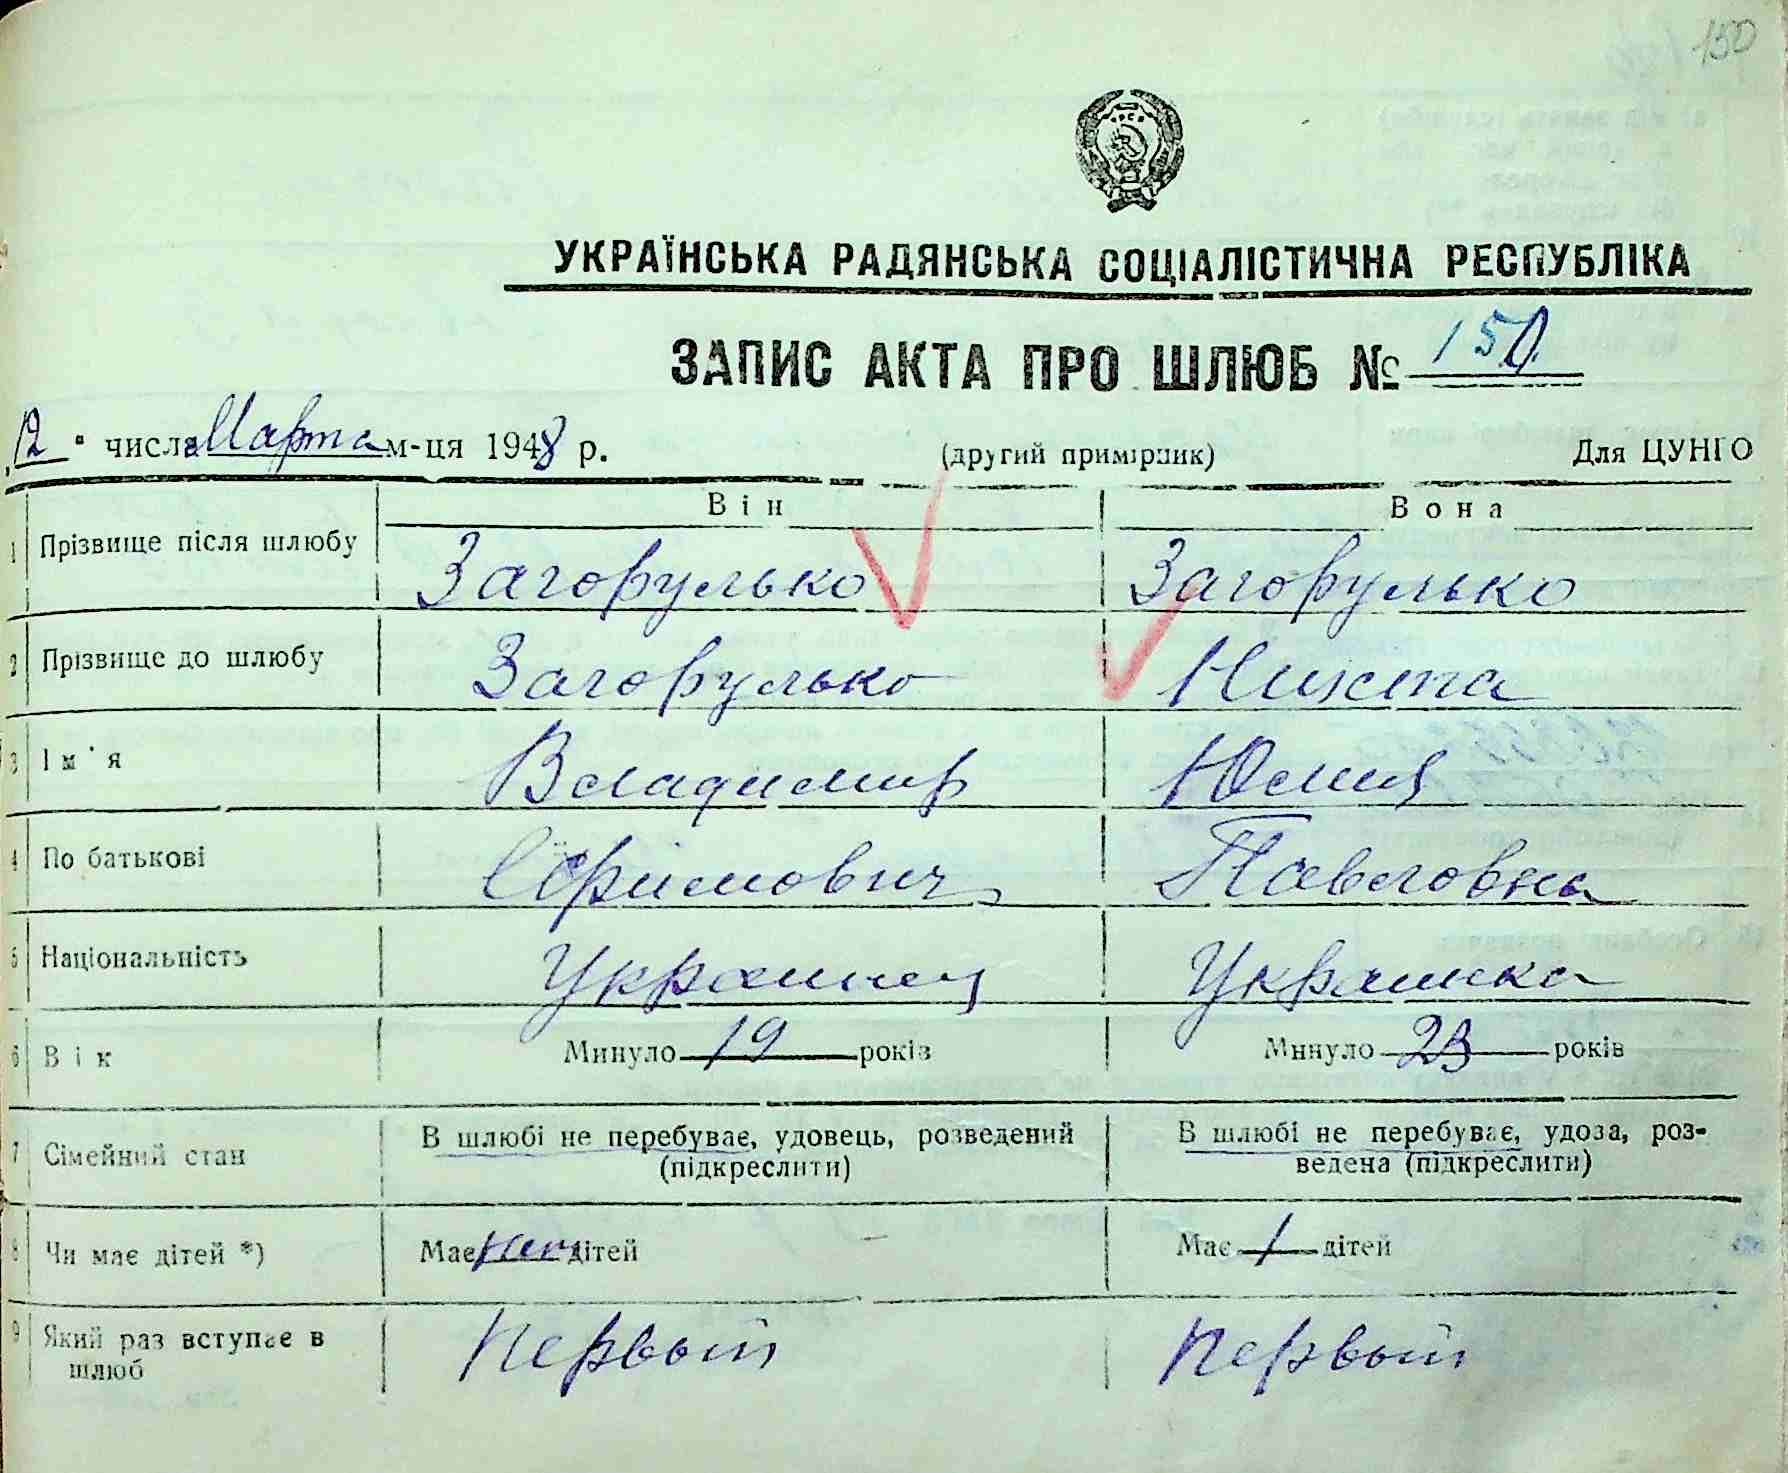 150
УКРАЇНСЬКА РАДЯНСЬКА СОЦІАЛІСТИЧНА РЕСПУБЛІКА
ЗАПИС АКТА ПРО ШЛЮБ № 150
„12" числа Марта м-ця 1948 р. (другий примірник) Для ЦУНГО
Він Вона
1 Прізвище після шлюбу Загорулько Загорулько
2 Прізвище до шлюбу Загорулько
3 Ім'я Владимир Юлия
4 По батькові Ефимович Павловна
5 Національність Украинец Украинка
6 Вік Минуло 19 років Минуло 23 років
7 Сімейний стан В шлюбі не перебуває, удовець, розведений (підкреслити) В шлюбі не перебуває, удова, роз-
ведена (підкреслити)
8 Чи має дітей *) Має нет дітей Має 1 дітей
9 Який раз вступає в шлюб Первый Первый